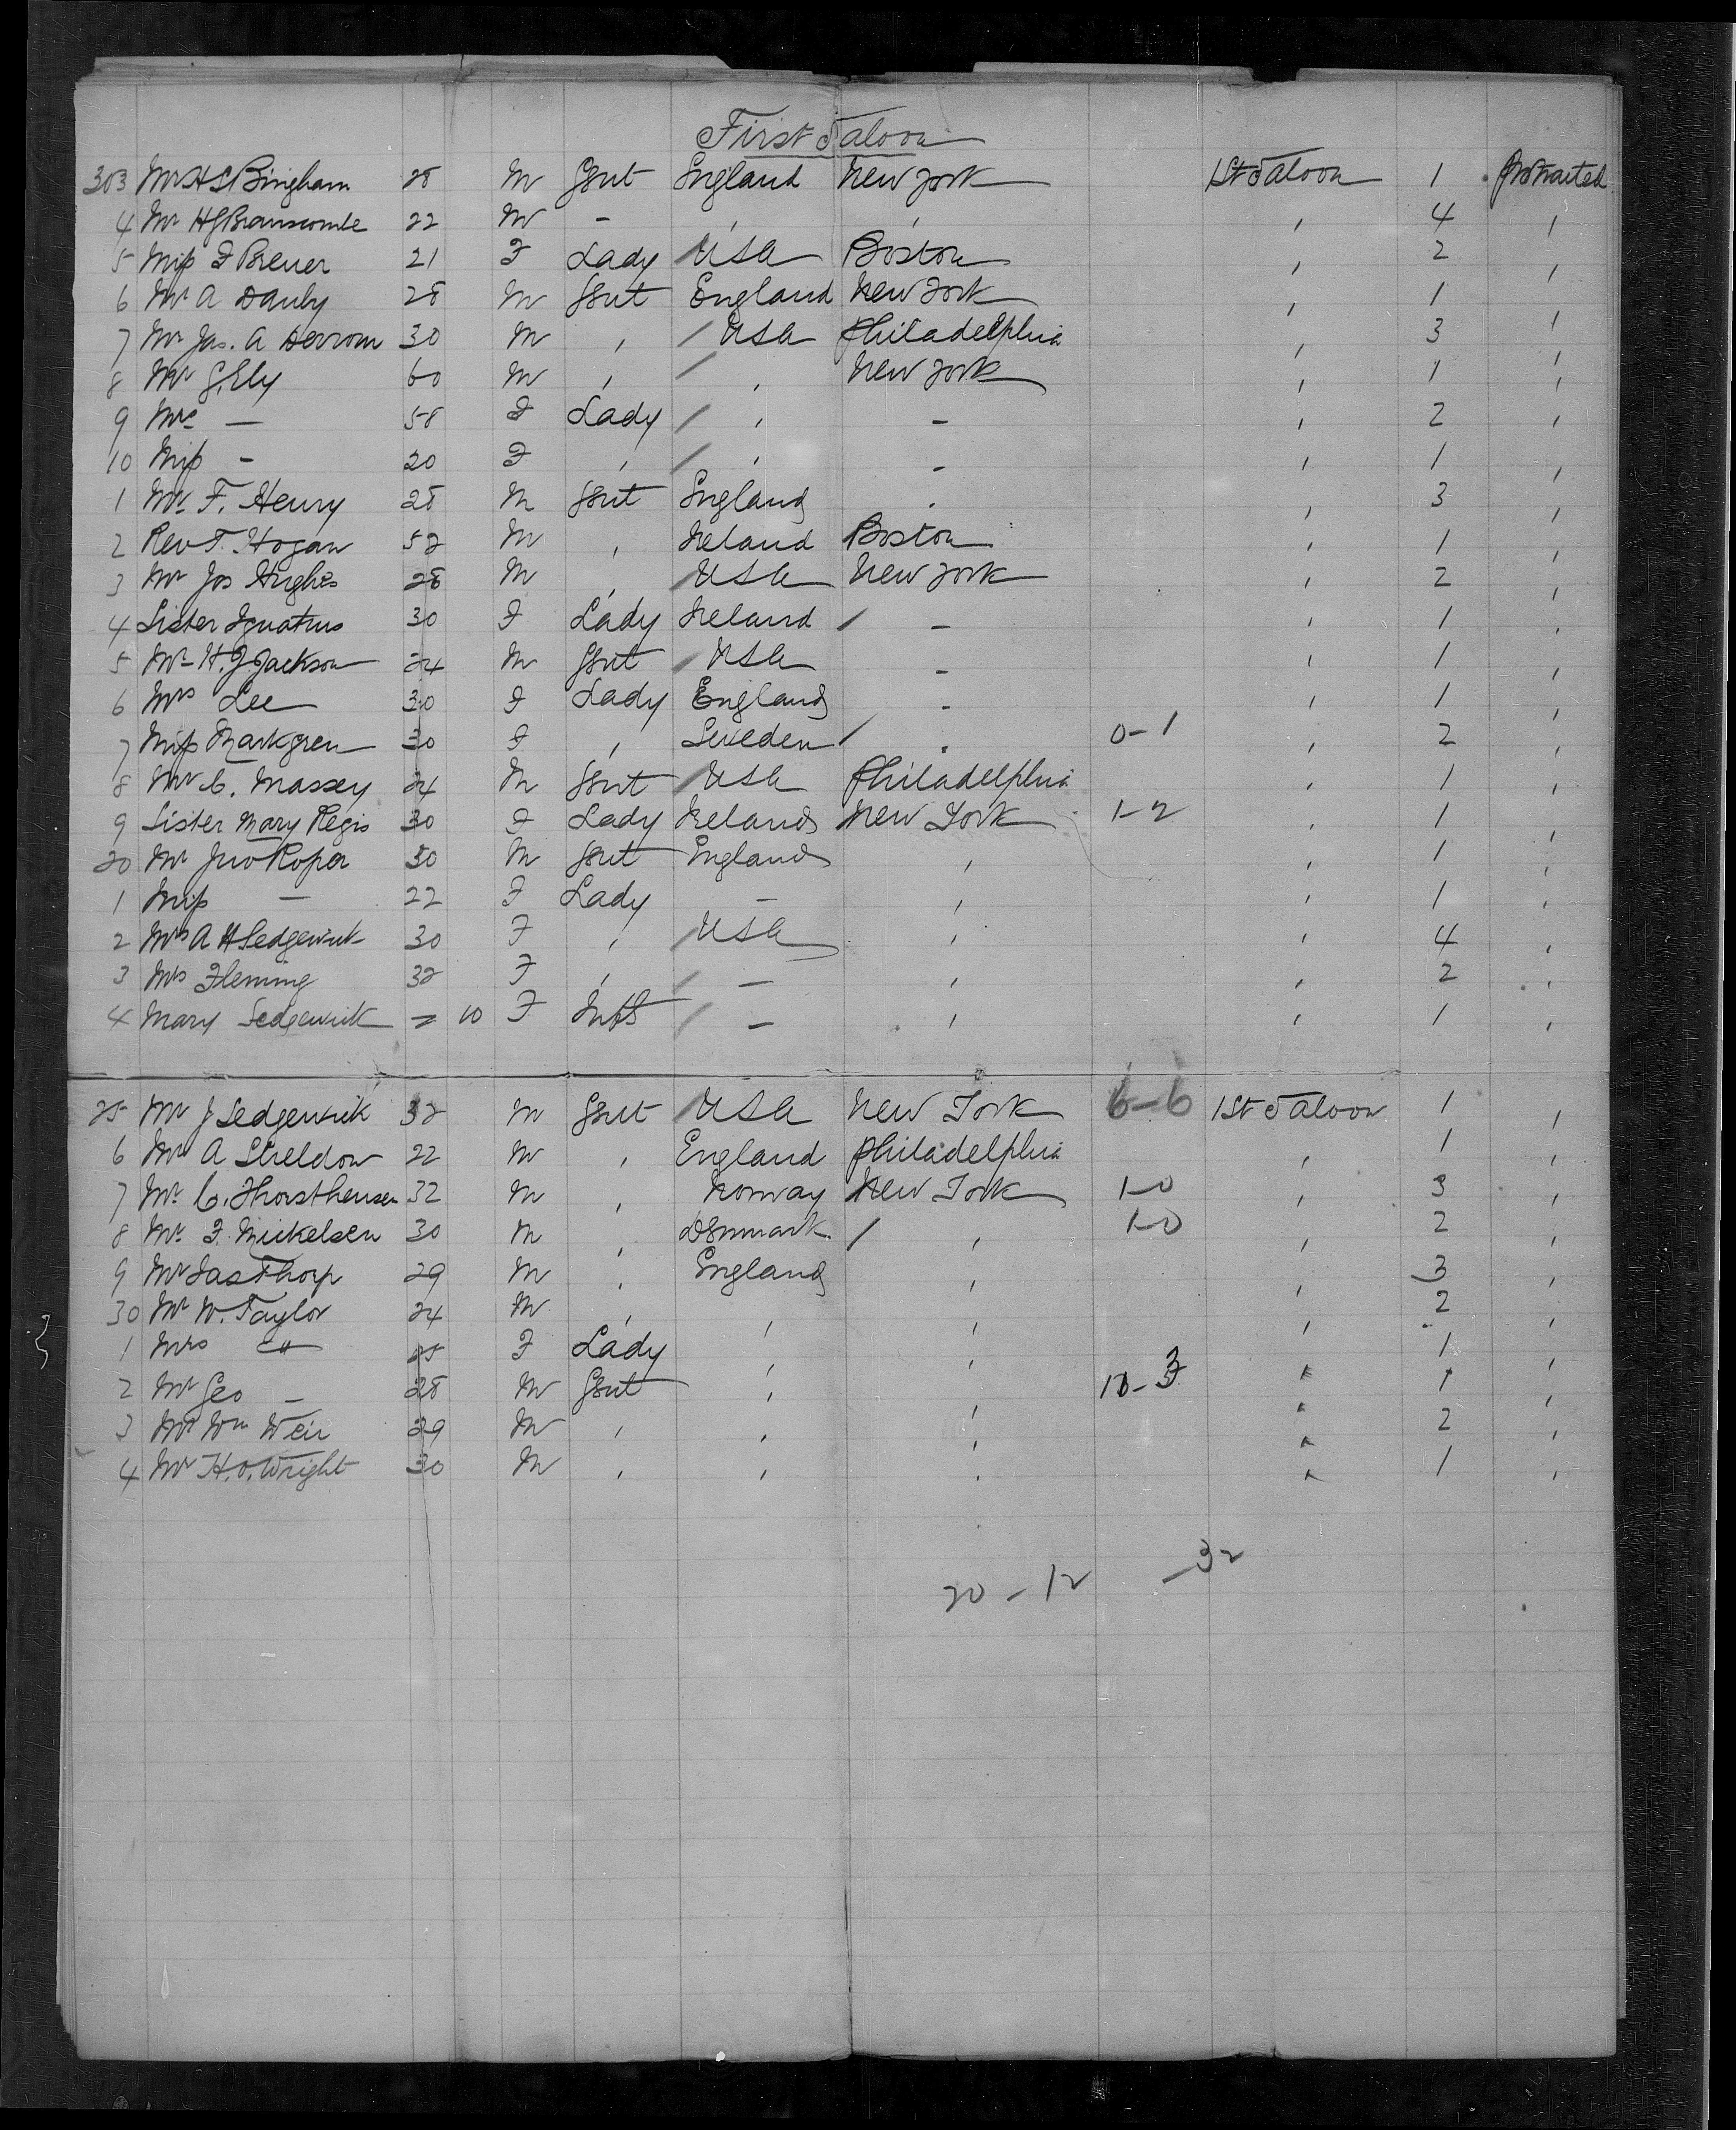 First Saloon
303 Mr H S Bingham 28 M Gent England New York 1st Saloon 1 Protracted
4 Mr H G Branscombe 22 M - , , , 4 ,
5 Miss F Brener 21 F Lady / USA Boston , 2 ,
6 Mr A Danby 28 M Gent England New York , 1 ,
7 Mr Jas. A Derrom 30 M , / USA Philadelphia , 3 ,
8 Mr G. Ely 60 M , / , New York , 1 ,
9 Mrs — 58 F Lady / , - , 2 ,
10 Miss - 20 F , / , - , 1 ,
1 Mr F. Henry 28 M Gent England . , 3 ,
2 Rev T. Hogan 52 M , Ireland Boston , 1 ,
3 Mr Jos Hughes 28 M , USA New York , 2 ,
4 Sister Ignatius 30 F Lady Ireland / - , 1 ,
5 Mr H. J Jackson 24 M Gent / USA - , 1 ,
6 Mrs Lee 30 F Lady England - , 1 ,
7 Miss Markgren 30 F , Sweden / . 0-1 , 2 ,
8 Mr C. Massey 24 M Gent / USA Philadelphia , 1 ,
9 Sister Mary Regis 30 F Lady Ireland New York 1-2 , 1 ,
20 Mr Jno Roper 30 M Gent England , , 1 ,
1 Miss — 22 F Lady — , , 1 ,
2 Mrs A H Sedgewick 30 F , / USA , , 4 ,
3 Mrs Fleming 32 F , / — , , 2 ,
4 Mary Sedgewick = 10 F Inft / — , , 1 ,
25 Mr J Sedgewick 32 M Gent / USA New York 6-6 1st Saloon 1 ,
6 Mr A Sheldon 22 M , England Philadelphia , 1 ,
7 Mr C. Thorsthensen 32 M , Norway New York 1-0 , 3 ,
8 Mr F. Mickelsen 30 M , Denmark / , 1-0 , 2 ,
9 Mr Jas Thorp 29 M , England , , 3 ,
30 Mr W. Taylor 24 M , , , , 2 ,
1 Mrs " 25 F Lady , , 1 ,
2 Mr Geo — 28 M Gent , 10-3 " 1 ,
3 Mr Wm Weir 29 M , , , " 2 ,
4 Mr H. O. Wright 30 M , , , " 1 ,
20 - 12 - 32